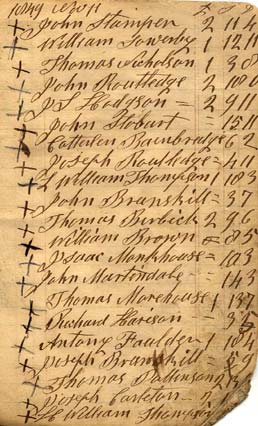 1849
£ S
+ John Stamper 2 11 4
+ William Sowerby 1 12 11
Thomas Nicholson 1 3 8
+ John Routledge 2 18 0
+ Hodgson = 2 9 11
+ John Hobart 15 11
+ Bainbridge 6 2
+ Joseph Routledge = 4 11
+ William Thompson 1 18 3
+ John Branskill = 3 7
+ Thomas Birbick 2 9 6
+ William Brown = 8 5
+ Isaac Monkhouse = 10 3
+ John Martindale - 14 3
+ Thomas Morehouse 1 13 7
+ Richard Harison - 3
+ Antony Faulder 1 18 4
+ Joseph Branskill = 9
+ Thomas Pattinson 2
+ Joseph Carleton = 2
+ William Thompson